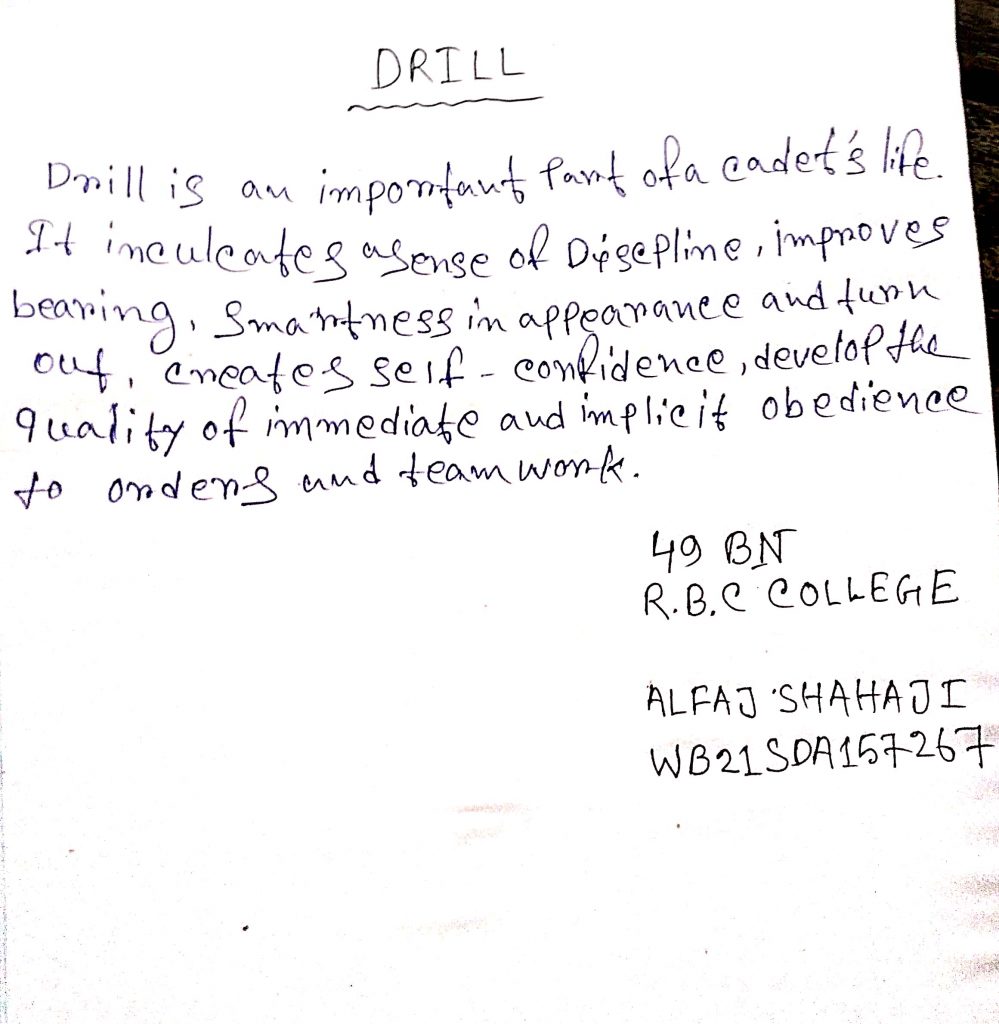 DRILL
Drill is an important part of a cadet's life.
It inculcates a sense of Disepline, improves
bearing, smartness in appearance and turn
out, creates self - confidence, develop the
quality of immediate and implicit obedience
to orders and team work.
49 BN
R.B.C COLLEGE
ALFAJ SHAHAJI
WB21SDA157267